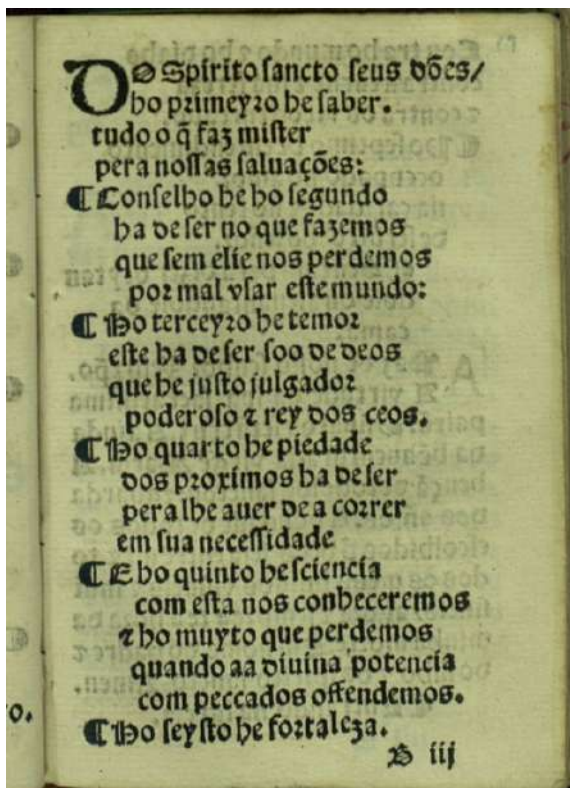 DO Spirito sancto seus dões/
ho primeyro he saber.
tudo o q̃ faz mister
pera nossas saluações:
¶ Conselho he ho segundo
ha de ser no que fazemos
que sem elle nos perdemos
por mal vsar este mundo:
¶ Ho terceyro he temor
este ha de ser soo de deos
que he justo julgador
poderoso ⁊ rey dos ceos.
¶ Ho quarto he piedade
dos proximos ha de ser
pera lhe auer de acorrer
em sua necessidade
¶ E ho quinto he sciencia
com esta nos conheceremos
⁊ ho muyto que perdemos
quando aa diuina potencia
com peccados offendemos.
¶ Ho seysto he fortaleza.
B iij